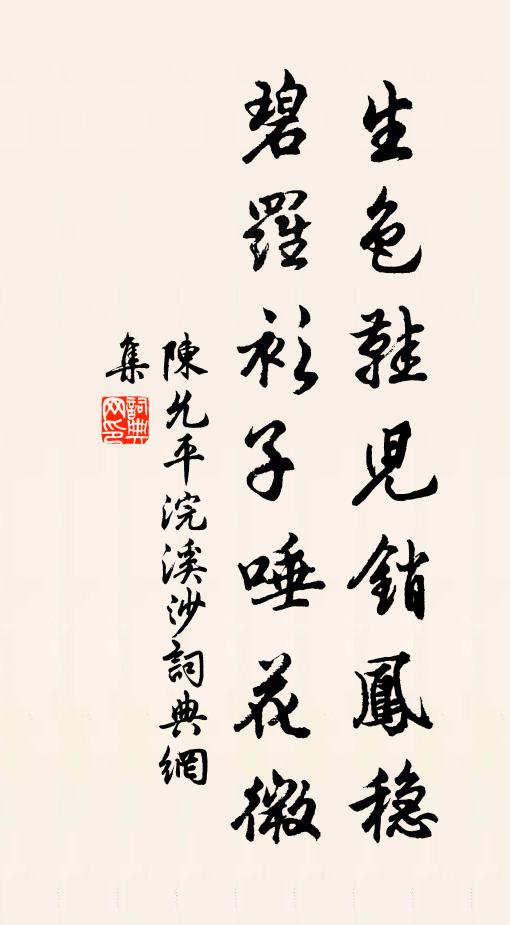 生色鞋児銷鳳穩
碧羅衫子唾花微
陳允平浣溪沙詞典網
集
詞典
网印